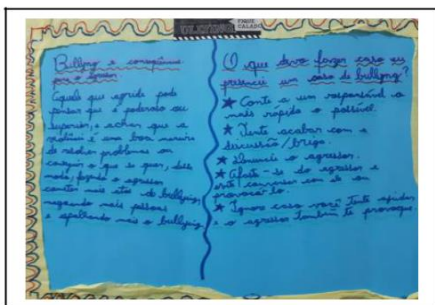 FIQUE
CALADO
Bullying e consequências
para o
Aquele que agride pode
pensar que é poderoso ou
superior, e achar que a
violência é uma boa maneira
de resolver problemas ou
conseguir o que se quer, desse
modo, fazendo o agressor
cometer mais atos de bullying,
magoando mais pessoas
e espalhando mais o bullying.
O que devo fazer caso eu
presencie um caso de bullying?
★ Conte a um responsável o
mais rápido o possível.
★ Tente acabar com a
discussão/briga.
★ Denuncie o agressor.
★ Afaste-se do agressor e
evite conversar com ele ou
provocá-lo.
★ Ignore caso você tente ajudar
e o agressor também te provoque.